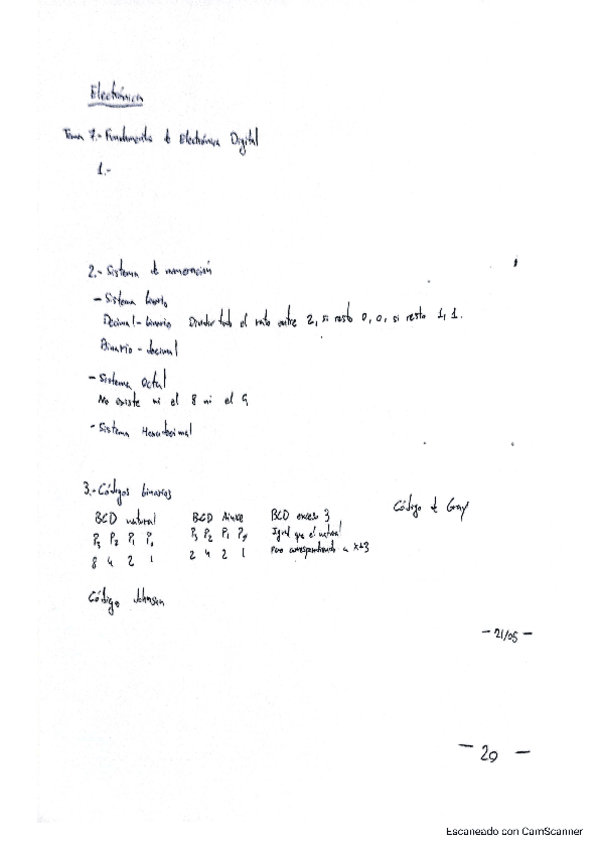 Electrónica
Tema 7.- Fundamentos de Electrónica Digital
1.-
2.- Sistema de numeración
- Sistema binario
Decimal - binario Dividir todo el rato entre 2, si resto 0, 0, si resto 1, 1.
Binario - decimal
- Sistema Octal
No existe ni el 8 ni el 9
- Sistema Hexadecimal
3.- Códigos binarios
BCD natural BCD Aiken BCD exceso 3 Código de Gray
P3 P2 P1 P0 P3 P2 P1 P0 Igual que el natural
8 4 2 1 2 4 2 1 pero correspondiendo a x+3
Código Johnson
- 21/05 -
- 29 -
Escaneado con CamScanner